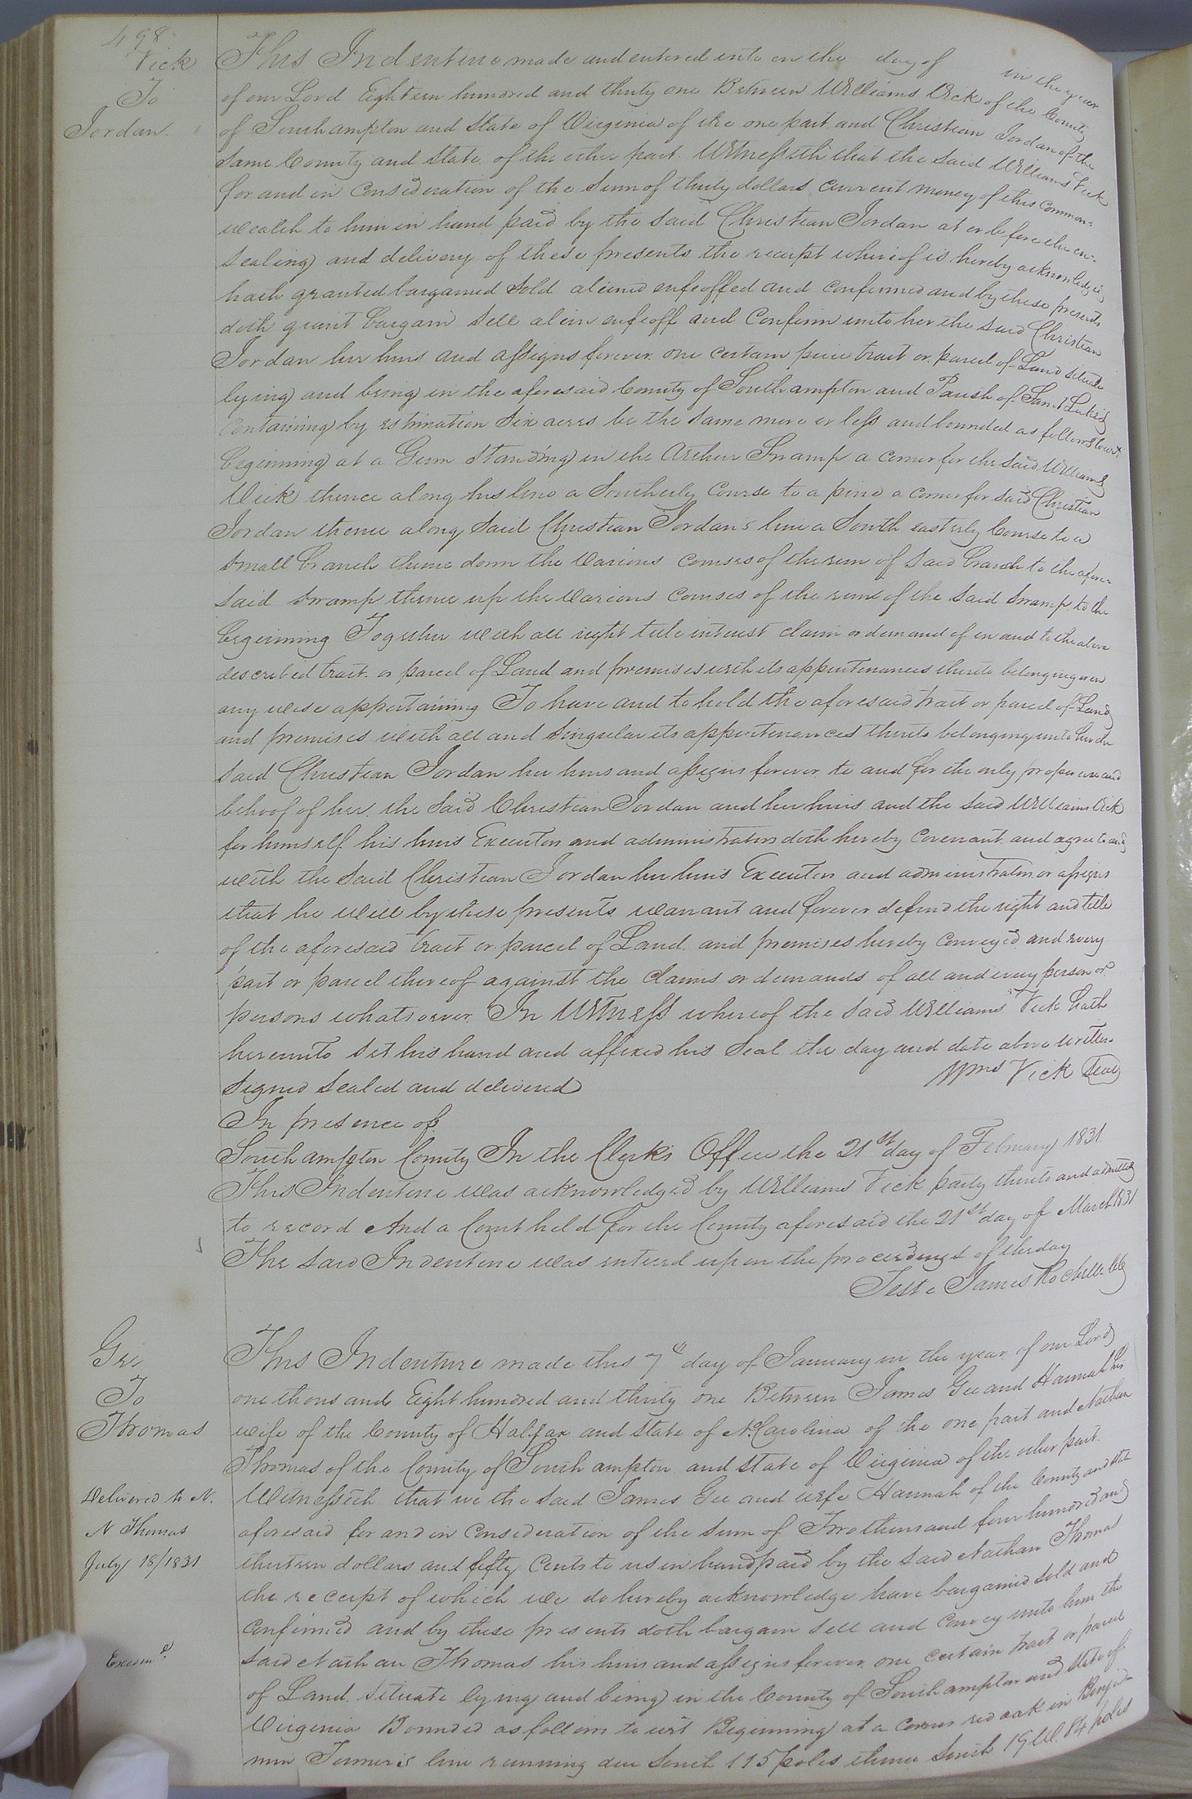 498
Vick
To
Jordan
This Indenture made and entered into on the day of in the year
of our Lord Eighteen hundred and thirty one Between Williams Vick of the County
of Southampton and State of Virginia of the one part and Christian Jordan of the
same County and State of the other part Witnesseth that the said Williams Vick
for and in Consideration of the Sum of thirty dollars current money of this Common-
wealth to him in hand paid by the said Christian Jordan at or before the en-
sealing and delivery of these presents the receipt whereof is hereby acknowledged
hath granted bargained Sold aliened enfeoffed and confirmed and by these presents
doth grant bargain Sell alien enfeoff and Confirm unto her the said Christian
Jordan her heirs and assigns forever one certain piece tract or parcel of Land situate
lying and being in the aforesaid County of Southampton and Parish of Saint Lukes
Containing by estimation Six acres be the same more or less and bounded as follows towit
Beginning at a Gum Standing in the Swamp a corner for the said Williams
Vick thence along his line a Southerly Course to a pine a corner for said Christian
Jordan thence along Said Christian Jordans line a South easterly Course to a
Small branch thence down the various courses of the run of Said branch to the afore-
said Swamp thence up the various courses of the run of the Said Swamp to the
beginning Together with all right title interest claim or demand of in and to the above
described tract or parcel of Land and premises with its appurtenances thereto belonging or in
any wise appertaining To have and to hold the aforesaid tract or parcel of Land
and premises with all and Singular its appurtenances thereto belonging unto her the
Said Christian Jordan her heirs and assigns forever to and for the only proper use and
behoof of her the Said Christian Jordan and her heirs and the said Williams Vick
for himself his heirs Executors and administrators doth hereby Covenant and agree to and
with the Said Christian Jordan her heirs Executors and administrators or assigns
that he will by these presents warrant and forever defend the right and title
of the aforesaid tract or parcel of Land and premises hereby Conveyed and every
part or parcel thereof against the Claims or demands of all and every person or
persons whatsoever In Witness whereof the said Williams Vick hath
hereunto Set his hand and affixed his Seal the day and date above written
Signed Sealed and delivered Wms Vick Seal
In presence of
Southampton County In the Clerks Office the 21st day of February 1831
This Indenture was acknowledged by Williams Vick party thereto and admitted
to record And a Court held for the County aforesaid the 21st day of March 1831
The said Indenture was entered upon the proceedings of the day
Teste James Rochelle Clk
Gee
To
Thomas
Delivered to N.
N Thomas
July 18/1831
Examd.
This Indenture made this 7th day of January in the year of our Lord
one thousand Eight hundred and thirty one Between James Gee and Hannah his
wife of the County of Halifax and State of N. Carolina of the one part and Nathan
Thomas of the County of Southampton and State of Virginia of the other part
Witnesseth that we the said James Gee and wife Hannah of the County and State
aforesaid for and in Consideration of the Sum of Two thousand four hundred and
thirteen dollars and fifty Cents to us in hand paid by the said Nathan Thomas
the receipt of which we do hereby acknowledge have bargained Sold and
Confirmed and by these presents doth bargain Sell and Convey unto him the
Said Nathan Thomas his heirs and assigns forever one certain tract or parcel
of Land Situate lying and being in the County of Southampton and State of
Virginia Bounded as follows to wit Beginning at a Corner red oak in Benja-
min Turner's line running due South 115 poles thence South 19 W. 84 poles